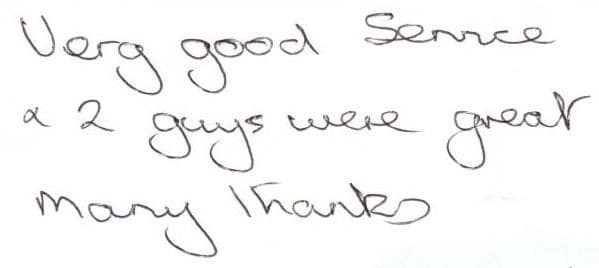 Very good Service
& 2 guys were great
Many Thanks